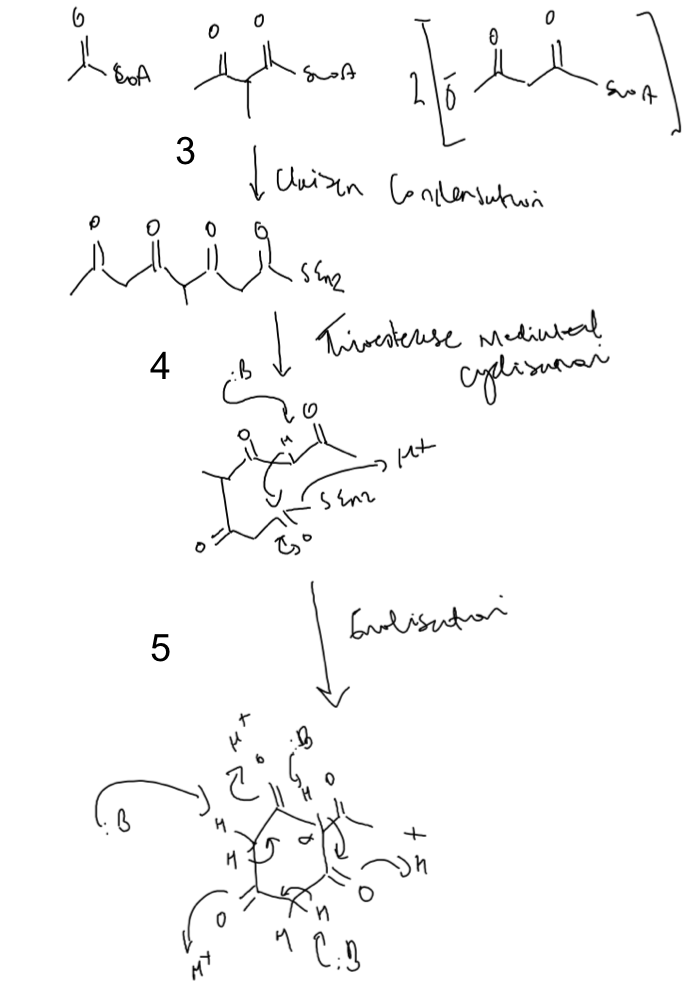 O
O O
O O
SCoA
SCoA
2
SCoA
3
Claisen Condensation
O O O O
SEnz
4
Thioesterase Mediated
cyclisation
:B
O
H
O
H+
SEnz
O
O
5
Enolisation
H+
:B
O
O
H
:B
H
H
α
+
H
O
O
H
H
H+
:B